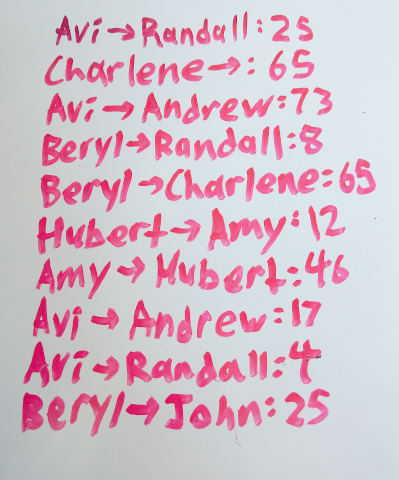 Avi→Randall: 25
Charlene→: 65
Avi→Andrew: 73
Beryl→Randall: 8
Beryl→Charlene: 65
Hubert→Amy: 12
Amy→Hubert: 46
Avi→Andrew: 17
Avi→Randall: 4
Beryl→John: 25